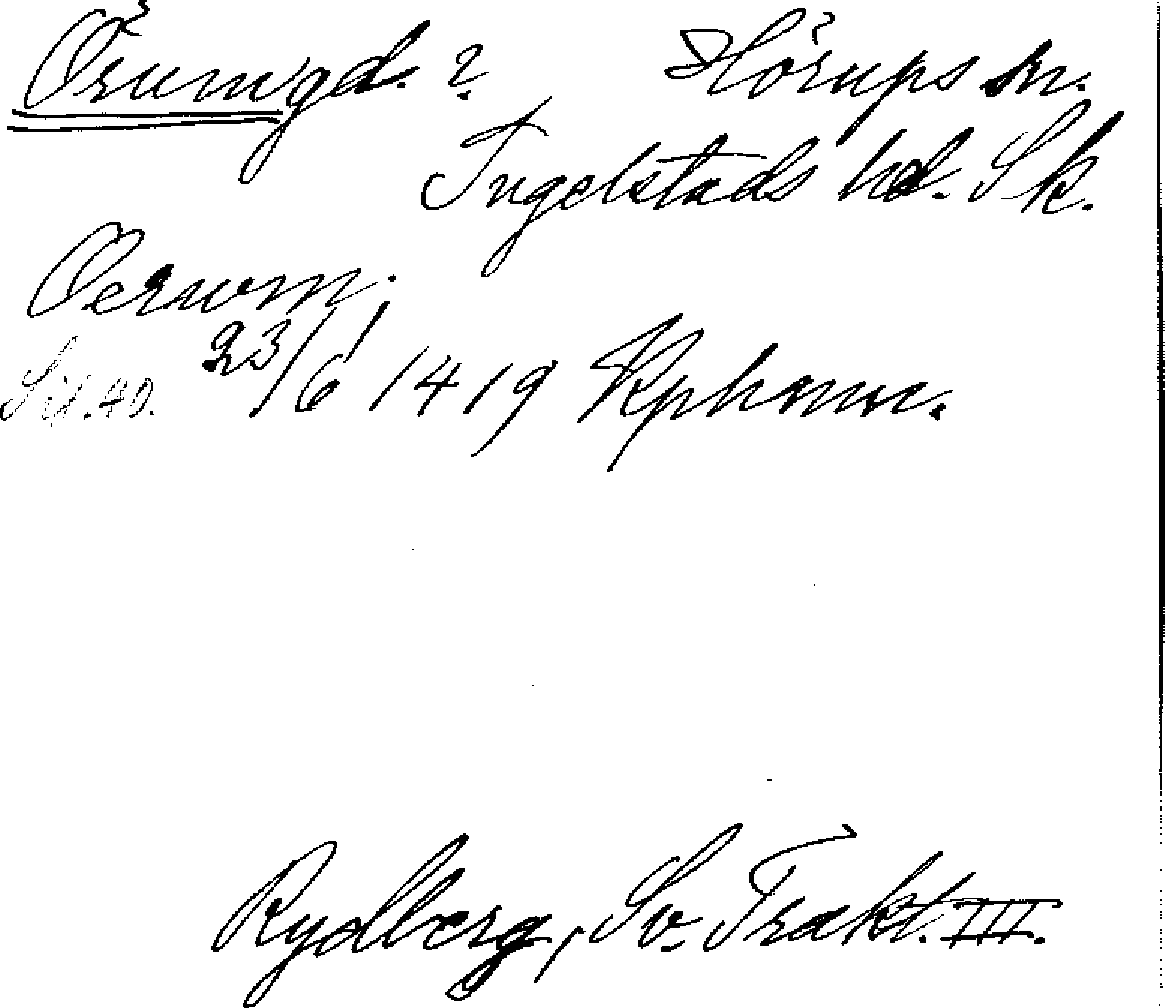 Örum, gd. ? Hörups sn.
Ingelstads hd. Sk.
Oerwm,
Sid. 40. 23/6 1419 Kphamn.
Rydberg, Sv. Trakt. III.